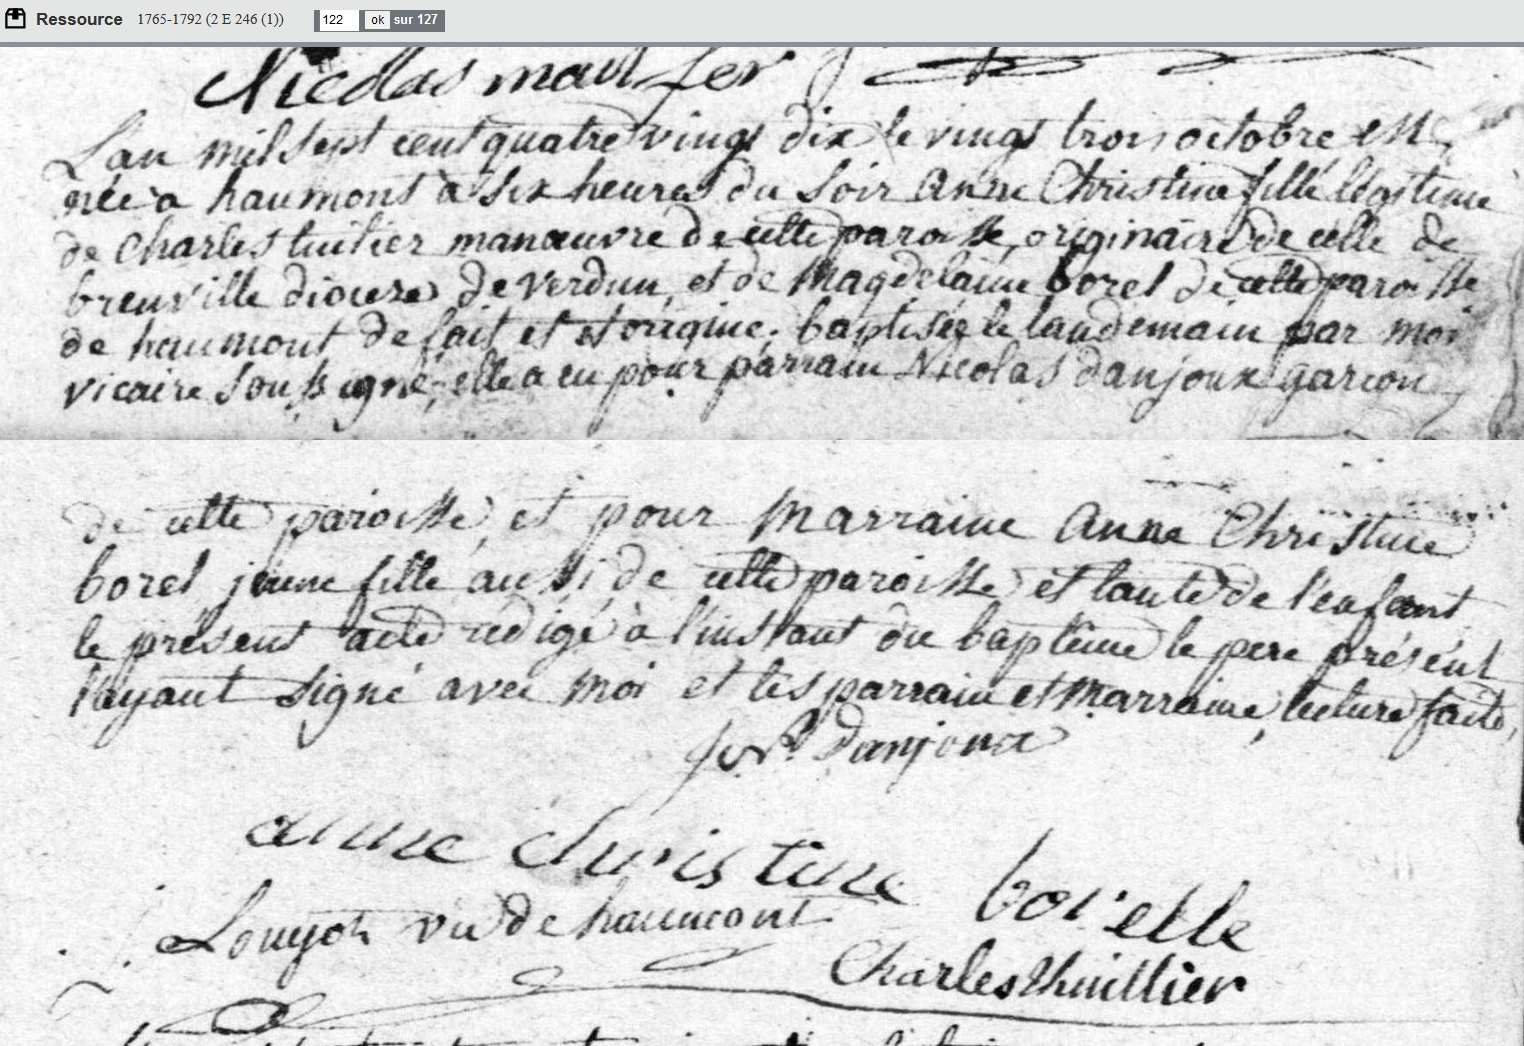 Ressource 1765-1792 (2 E 246 (1)) 122 ok sur 127
Nicolas
L'an mil sept cent quatre vingt dix le vingt trois octobre est
née à haumont à six heures du soir Anne Christine fille légitime
de Charles tuilier manœuvre de cette paroisse, originaire de celle de
breuville diocese de Verdun, et de Magdelaine borel de cette paroisse
de haumont de fait et d'origine; baptisée le landemain par moi
vicaire soussigné, elle a eu pour parrain Nicolas danjoux garcon
de cette paroisse, et pour Marraine Anne Christine
borel jeune fille aussi de cette paroisse et tante de l'enfant
le présent acte redigé à l'instant du baptême le pere présent
l'ayant signé avec moi et les parrain et Marraine, lecture faite,
Danjoux
anne christine borelle
Louyot vic de haumont
Charles Thuillier